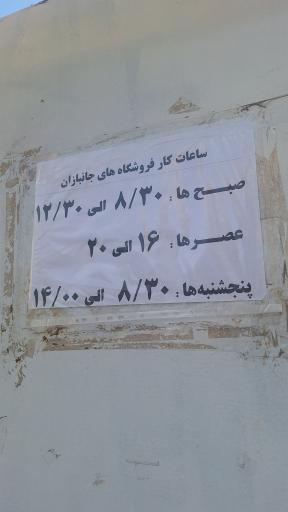 ساعات کار فروشگاه های جانبازان
صبح ها : ۸/۳۰ الی ۱۲/۳۰
عصرها : ۱۶ الی ۲۰
پنجشنبه‌ها : ۸/۳۰ الی ۱۴/۰۰